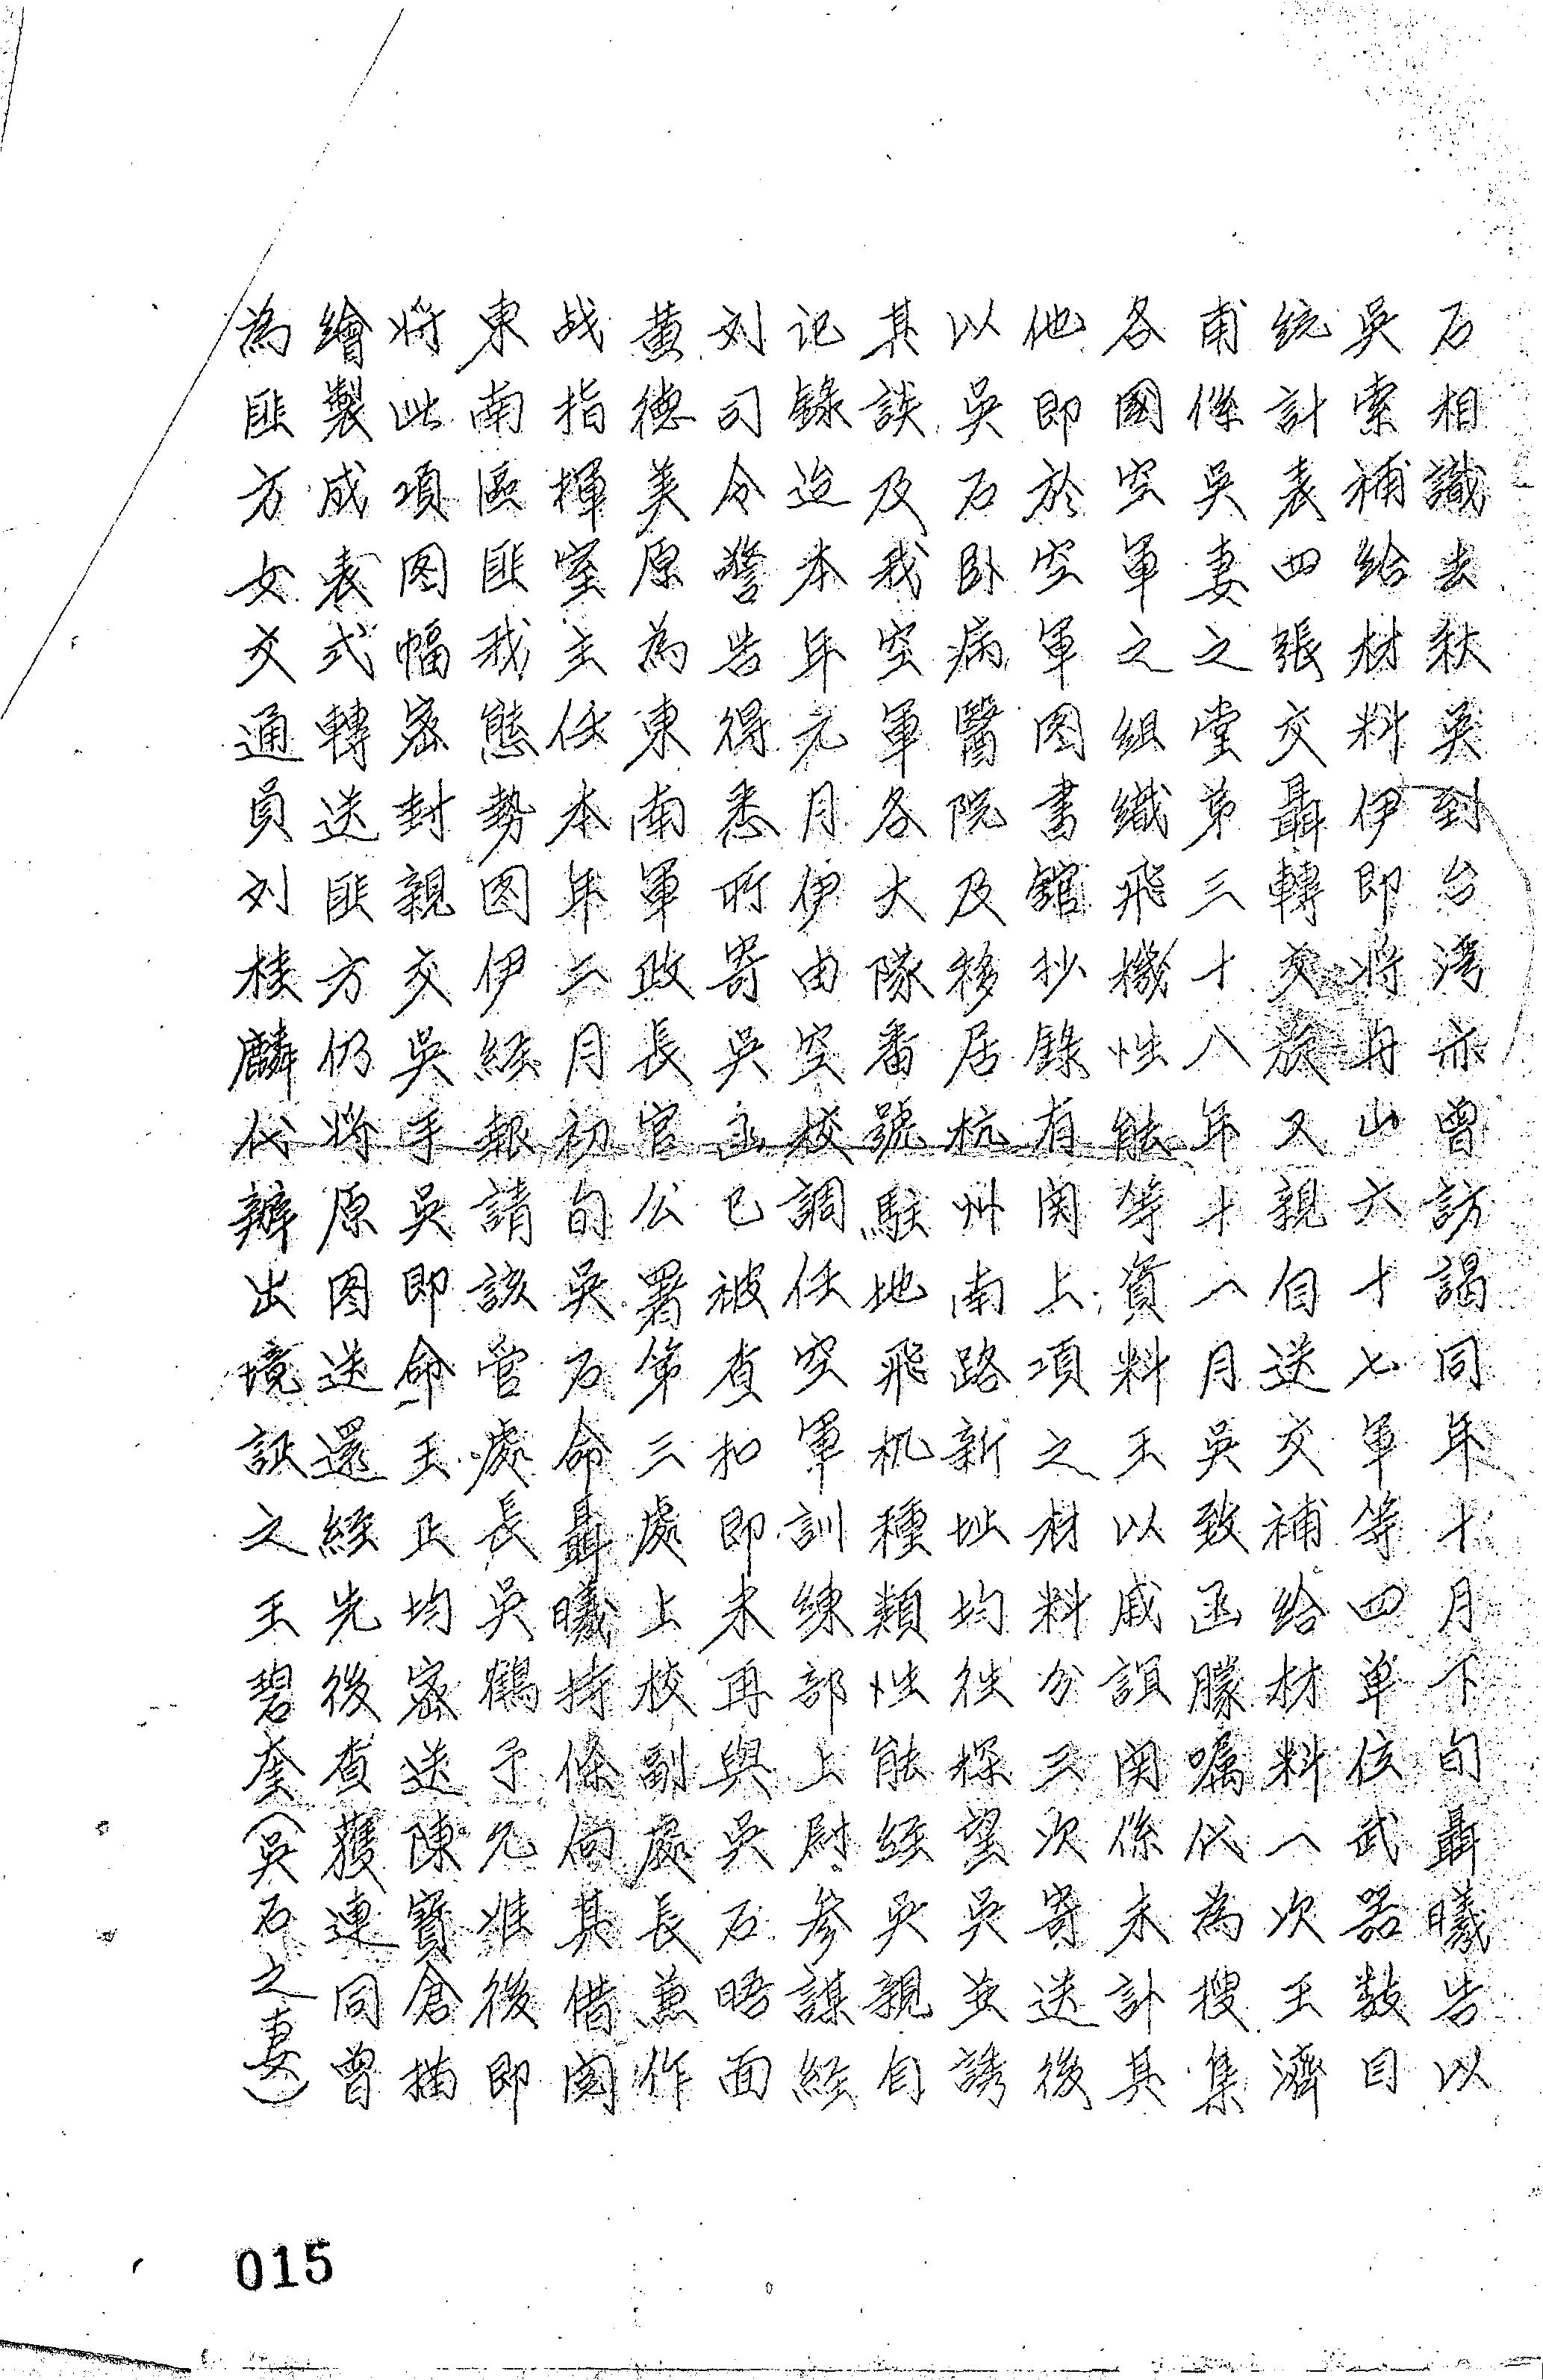 石相識去秋吳到台灣亦曾訪謁同年十月下旬聶曦告以
吳索補給材料伊即將舟山六十七軍等四单位武器数目
統計表四張交聶轉交旋又親自送交補給材料一次王濟
甫係吳妻之堂弟三十八年十一月吳致函朦嘱代為搜集
各國空軍之組織飛機性能等資料王以戚誼関係未計其
他即於空軍图書館抄錄有関上項之材料分三次寄送後
以吳石卧病醫院及移居杭州南路新址均往探望吳並誘
其談及我空軍各大隊番號駐地飛机種類性能經吳親自
记錄迨本年元月伊由空校調任空軍訓練部上尉參謀經
刘司令警告得悉所寄吳函已被查扣即未再與吳石晤面
黄德美原為東南軍政長官公署第三處上校副處長兼作
战指揮室主任本年二月初旬吳石命聶曦持條向其借閱
東南區匪我態勢図伊經報請該管處長吳鶴予允准後即
将此項图幅密封親交吳手吳即命王正均密送陳寶倉描
繪製成表式轉送匪方仍将原图送還經先後查獲連同曾
為匪方女交通員刘桂麟代辦出境証之王碧奎（吳石之妻）
015